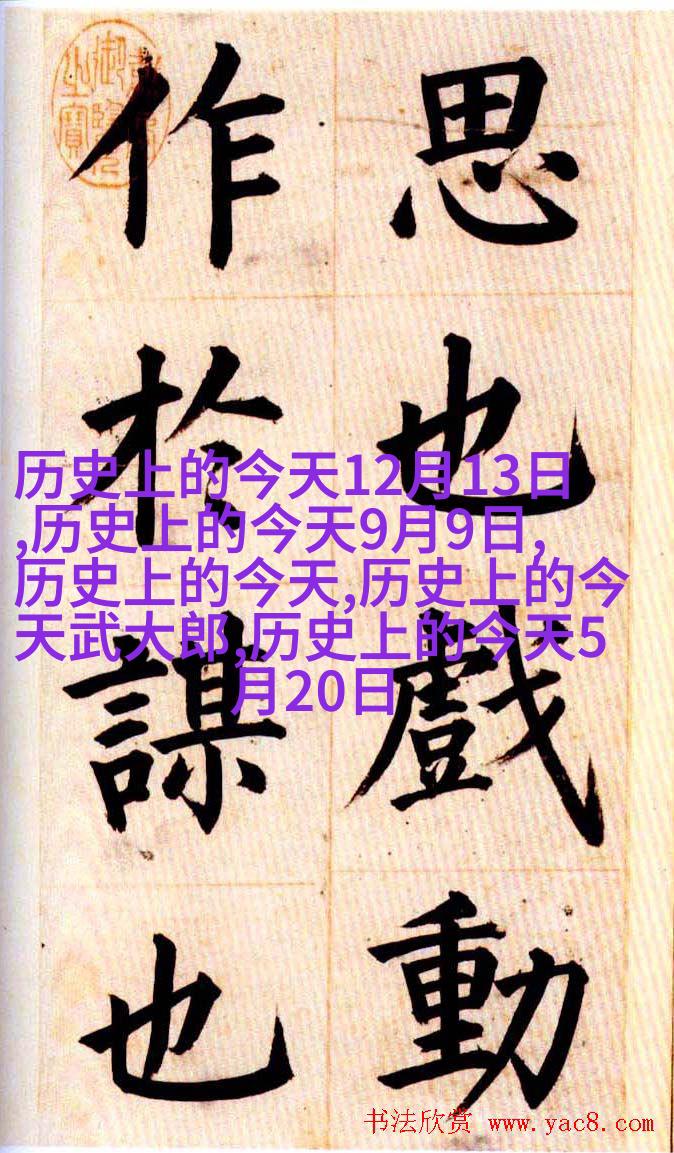 思也戲動
作於謀也
历史上的今天12月13日
,历史上的今天9月9日,
历史上的今天,历史上的今
天武大郎,历史上的今天5
月20日
书法欣赏 www.yac8.com